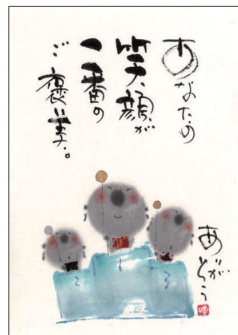 あなたの
笑顔が
一番の
ご褒美。
2
1
3
あり
がとう